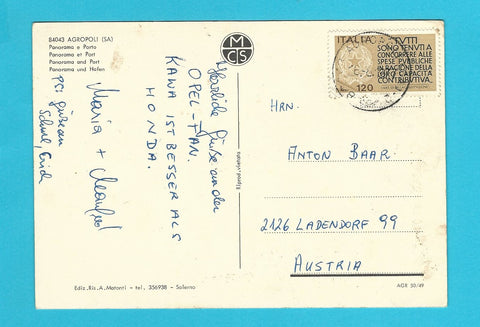 84043 AGROPOLI (SA)
Panorama e Porto
Panorama et Port
Panorama and Port
Panorama und Hafen
MCS
Herzliche Grüße an den
OPEL-FAN.
KAWA IST BESSER ALS
HONDA.
Maria + Manfred
PS: Grüße an
Ediz. Ris. A. Matonti - tel. 356938 - Salerno
Ripr. vietata
ITALIA
TUTTI
SONO TENUTI A
CONCORRERE ALLE
SPESE PUBBLICHE
IN RAGIONE DELLA
LORO CAPACITÀ
CONTRIBUTIVA
120
HRN.
ANTON BAAR
2126 LADENDORF 99
AUSTRIA
AGR 50/49